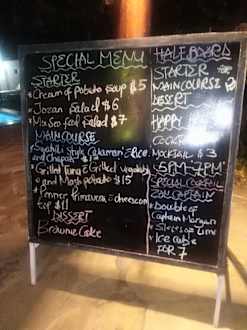 SPECIAL MENU
STARTER
* Cream of potato soup $5
* Jozan Salad $6
* Mix Sea food Salad $7
MAIN COURSE
* Swahili Style Calamari & Rice
and Chapati $13
* Grilled Tuna & Grilled vegetable
and Mash potato $15
* Penne Primavera &
top $11
DESSERT
Brownie Cake
HALF BOARD
STARTER
MAIN COURSE
DESERT
HAPPY
COCKT
MOCKTAIL $3
5PM-7PM
SPECIAL COCKTAIL
ZOU CAPTAIN
* Double of
Captain Morgan
* Slice of Lime
* Ice cube
FOR 7